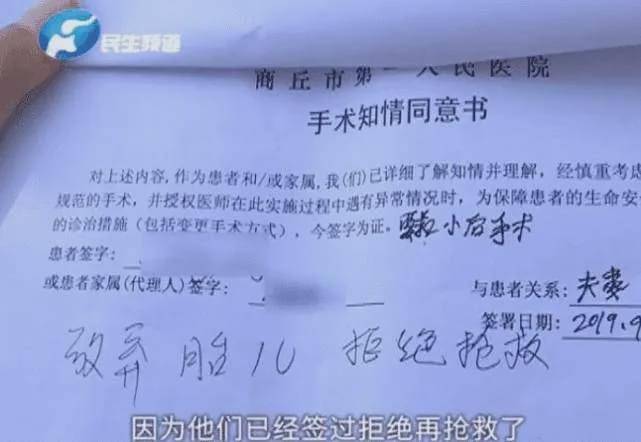 民生频道
商丘市第一人民医院
手术知情同意书
对上述内容,作为患者和/或家属,我(们)已详细了解知情并理解,经慎重考虑
规范的手术,并授权医师在此实施过程中遇有异常情况时,为保障患者的生命安
的诊治措施(包括变更手术方式),今签字为证。要求小后手术
患者签字:
或患者家属(代理人)签字:
与患者关系:夫妻
签署日期:2019.9
放弃胎儿 拒绝抢救
因为他们已经签过拒绝再抢救了